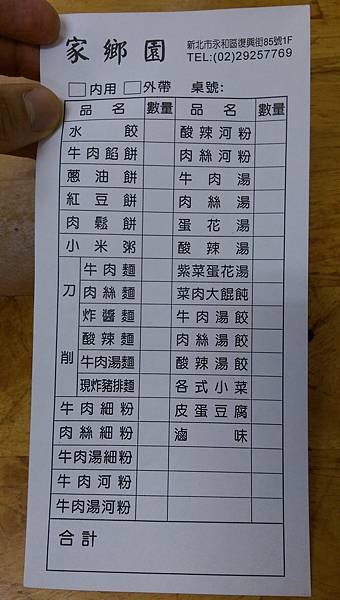 家鄉園
新北市永和區復興街85號1F
TEL:(02)29257769
內用 外帶 桌號:
品名 數量 品名 數量
水餃 酸辣河粉
牛肉餡餅 肉絲河粉
蔥油餅 牛肉湯
紅豆餅 肉絲湯
肉鬆餅 蛋花湯
小米粥 酸辣湯
刀削
牛肉麵 紫菜蛋花湯
肉絲麵 菜肉大餛飩
炸醬麵 牛肉湯餃
酸辣麵 肉絲湯餃
牛肉湯麵 酸辣湯餃
現炸豬排麵 各式小菜
牛肉細粉 皮蛋豆腐
肉絲細粉 滷味
牛肉湯細粉
牛肉河粉
牛肉湯河粉
合計